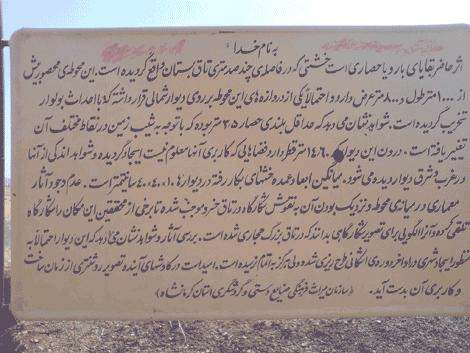 به نام خدا
اثر حاضر بقایای بارو یا حصاری است خشتی که در فاصله‌ی چند صد متری تاق بستان واقع گردیده است. این محوطه‌ی محصور بیش
از ۱۰۰۰ متر طول و ۸۰۰ متر عرض دارد و احتمالا یکی از دروازه‌های این محوطه بر روی دیوار شمالی قرار داشته که با احداث بولوار
تخریب گردیده است. شواهد نشان می‌دهد که حداقل بلندی حصار ۳/۵ متر بوده که با توجه به شیب زمین در نقاط مختلف آن
تغییر یافته است. در درون این دیوار که ۱۴/۶۰ متر قطر دارد فضاهایی که کاربری آنها معلوم نیست ایجاد گردیده و شواهد اندکی از آنها
در غرب و شرق دیوار دیده می‌شود. میانگین ابعاد عمده خشتهای بکار رفته در دیوارها ۱۰×۴۰×۴۰ سانتیمتر است. عدم وجود آثار
معماری در میانه‌ی محوطه و نزدیک بودن آن به نقوش شکارگاه در تاق خسرو موجب شده تا برخی از محققین این مکان را شکارگاه
تلقی کرده و آنرا الگویی برای تصویر شکارگاهی بدانند که در تاق بزرگ حجاری شده است. بررسی آثار و شواهد نشان می‌دهد که این دیوار احتمالا به
منظور ایجاد شهری در اواخر دوره‌ی اشکانی طرح ریزی شده ولی هرگز به اتمام نرسیده است. امید است در کاوشهای آینده تصویر روشنتری از زمان ساخت
و کاربری آن بدست آید. (سازمان میراث فرهنگی صنایع دستی و گردشگری استان کرمانشاه)